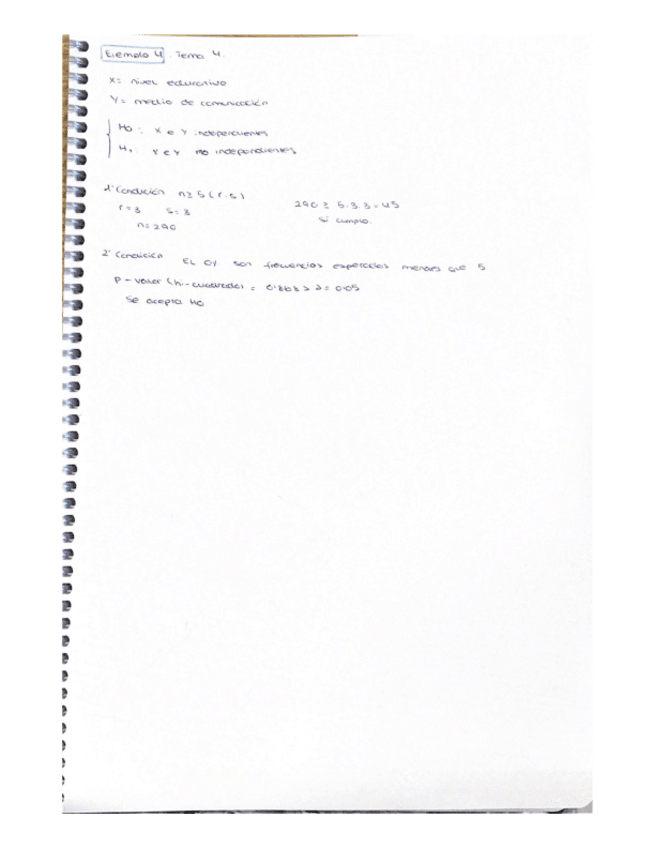 Ejemplo 4 Tema 4.
X= nivel educativo
Y= medio de comunicación
H0: X e Y independientes
H1: X e Y no independientes
1ª Condición n≥5(r.s) 290 ≥ 5.3.3=45
r=3 s=3 Si cumple.
n=290
2ª Condición El 0% son frecuencias esperadas menores que 5
P-valor (hi-cuadrado) = > = 0.05
Se acepta H0